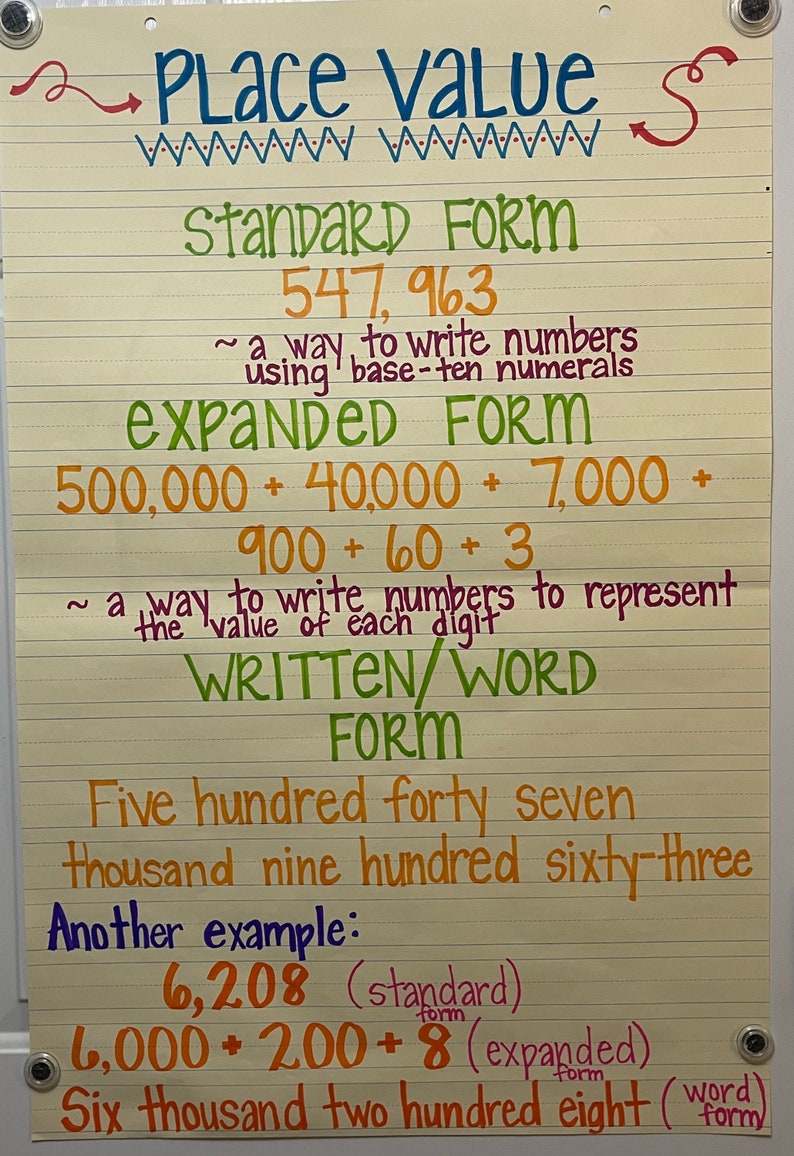 PLACE VALUE
STANDARD FORM
547,963
~ a way to write numbers
using base-ten numerals
EXPANDED FORM
500,000 + 40,000 + 7,000 +
900 + 60 + 3
~ a way to write numbers to represent
the value of each digit
WRITTEN/WORD
FORM
Five hundred forty seven
thousand nine hundred sixty-three
Another example:
6,208 (standard)
form
6,000 + 200 + 8 (expanded)
form
Six thousand two hundred eight (word
form)